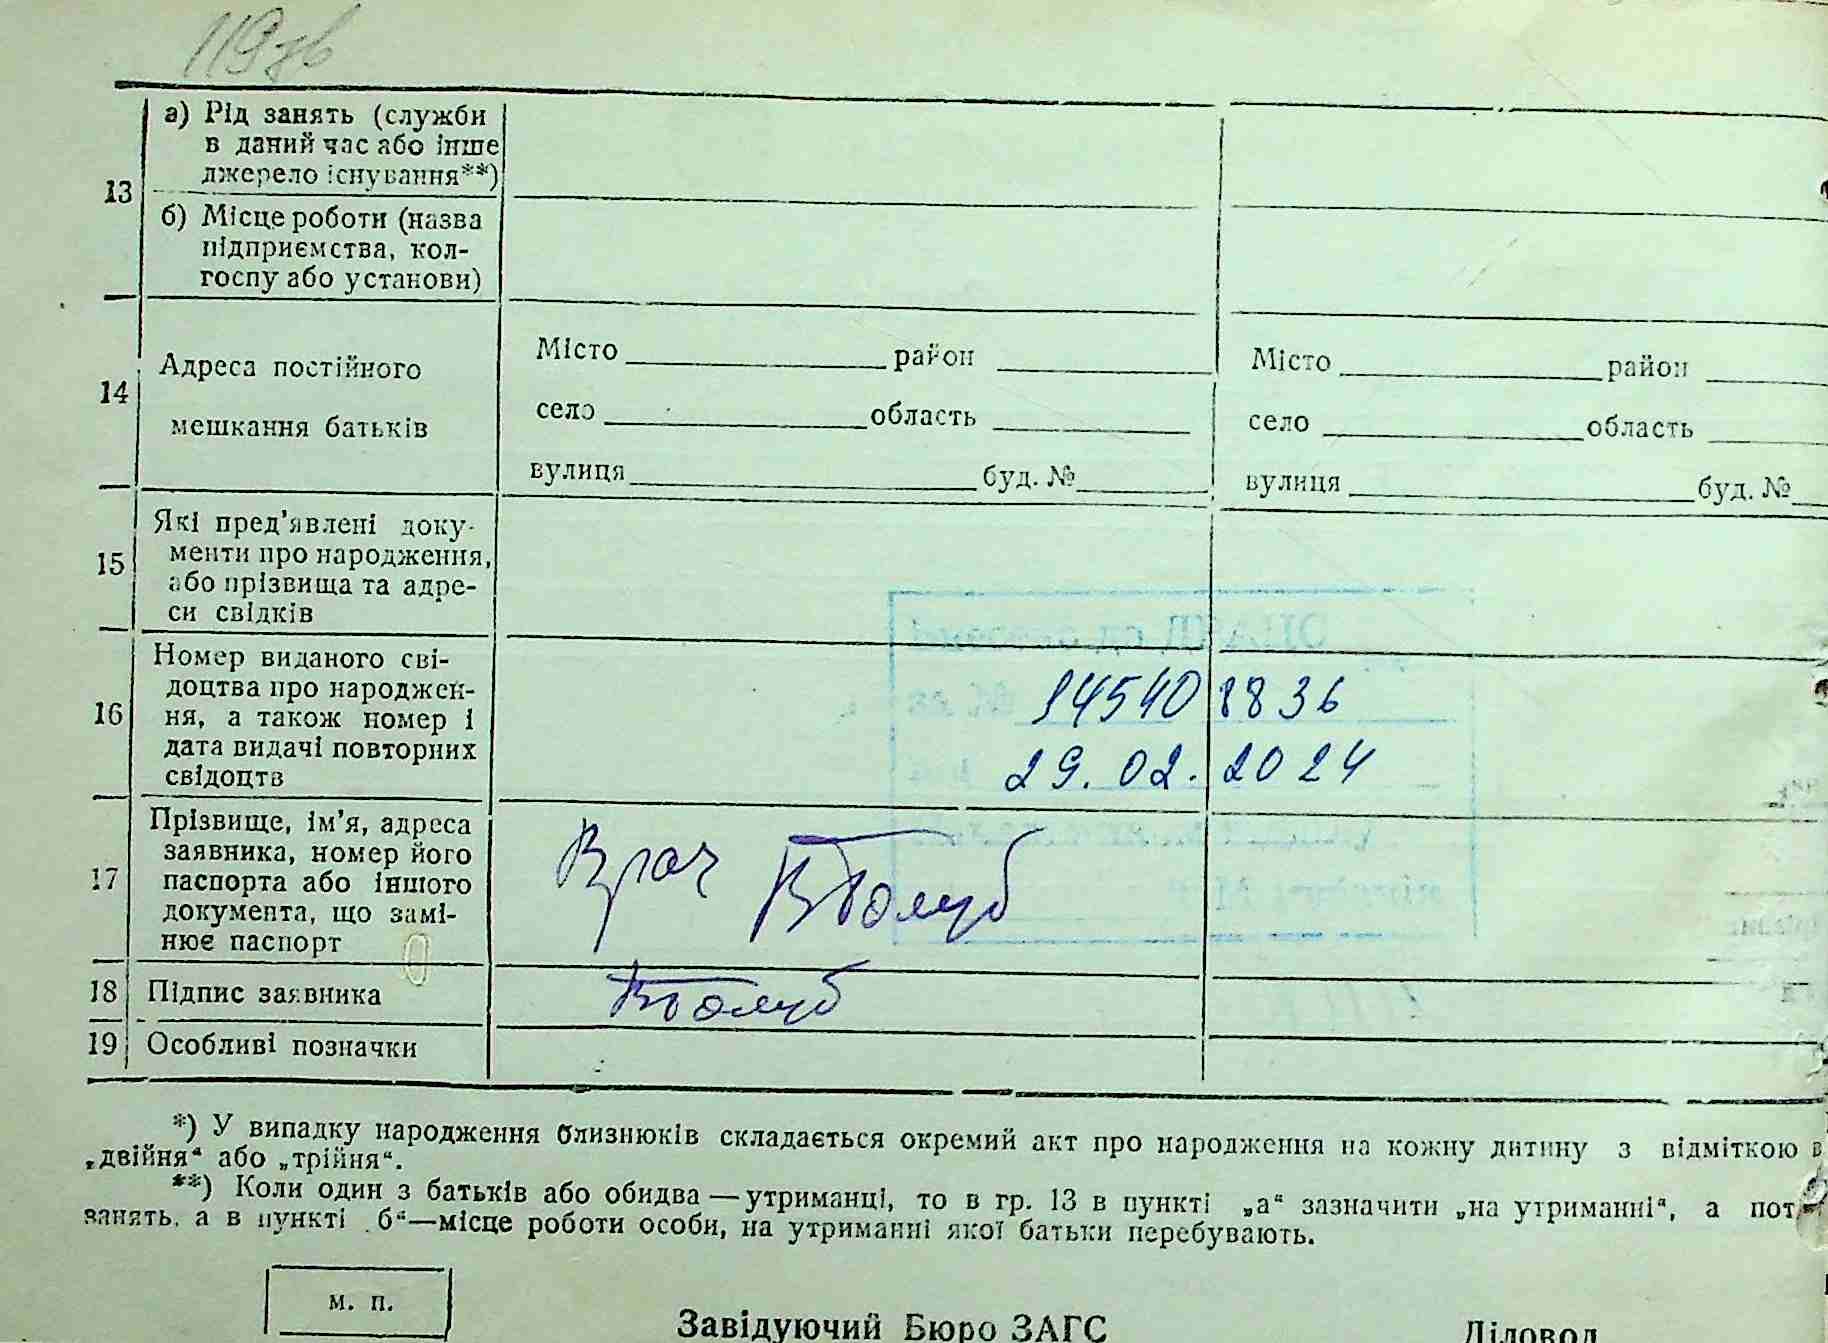 119зв
13
а) Рід занять (служби
в даний час або інше
джерело існування**)
б) Місце роботи (назва
підприємства, кол-
госпу або установи)
14
Адреса постійного
мешкання батьків
Місто район
село область
вулиця буд. №
Місто район
село область
вулиця буд. №
15
Які пред’явлені доку-
менти про народження,
або прізвища та адре-
си свідків
16
Номер виданого сві-
доцтва про народжен-
ня, а також номер і
дата видачі повторних
свідоцтв
14540 8836
29.02.2024
17
Прізвище, ім’я, адреса
заявника, номер його
паспорта або іншого
документа, що замі-
нює паспорт
Врач
18
Підпис заявника
19
Особливі позначки
*) У випадку народження близнюків складається окремий акт про народження на кожну дитину з відміткою в
„двійня“ або „трійня“.
**) Коли один з батьків або обидва — утриманці, то в гр. 13 в пункті „а“ зазначити „на утриманні“, а пот
занять, а в пункті „б“—місце роботи особи, на утриманні якої батьки перебувають.
м. п.
Завідуючий Бюро ЗАГС
Діловод